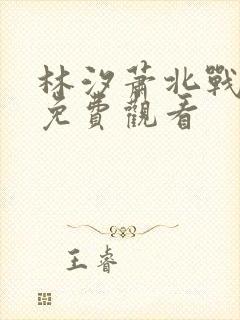 林汐蕭北戰
免費觀看
王睿